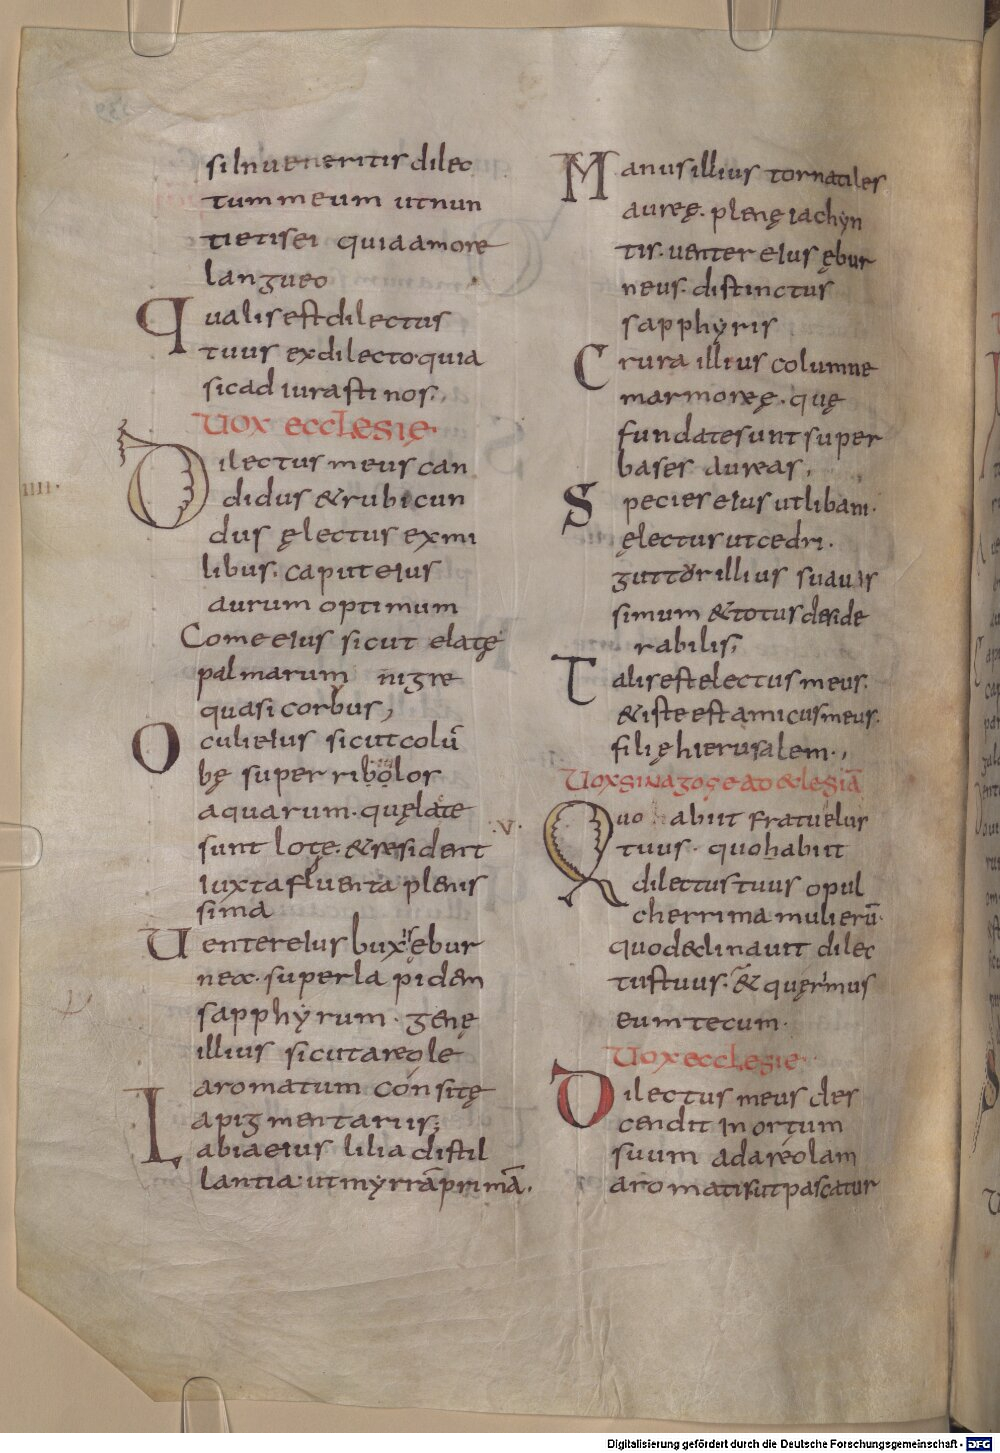 si Inveneritis dilec
tum meum ut nun
tietis ei quia amore
langueo
Qualis est dilectus
tuus ex dilecto·quia
sic adiurasti nos.
Vox ecclesię·
Dilectus meus can
IIII·
didus & rubicun
dus ęlectus ex mi
libus. caput eius
aurum optimum
Come eius sicut elatę
palmarum nigre
quasi corbus,
Oculi eius sicut colū
bę super ribolor
aquarum·quę late
sunt lotę·& resident
iuxta fluenta plenis
sima
Venter eius buxis ębur
nex·super lapidem
sapphyrum·genę
illius sicut areole
aromatum consitę
a pigmentariis;
Labia eius lilia distil
lantia·ut myrrā primā.
Manus illius tornatiles
aureę·plenę iachyn
tis·venter eius ębur
neus·distinctus
sapphyris
Crura illius columne
marmoreę·quę
fundate sunt super
bases aureas,
Species eius ut libani·
ęlectus ut cedri.
guttur illius suavis
simum & totus deside
rabilis;
Talis est electus meus.
& iste est amicus meus·
filię hierusalem·,
Vox sinagogę ad ecclesiā
·V·
Quo abiit fratuelis
tuus·quo habiit
dilectus tuus o pul
cherrima mulierū·
quo declinavit dilec
tus tuus·& quęrimus
eum tecum·
Vox ecclesie·
Dilectus meus des
cendit in ortum
suum ad areolam
aromatis ut pascatur
Digitalisierung gefördert durch die Deutsche Forschungsgemeinschaft - DFG